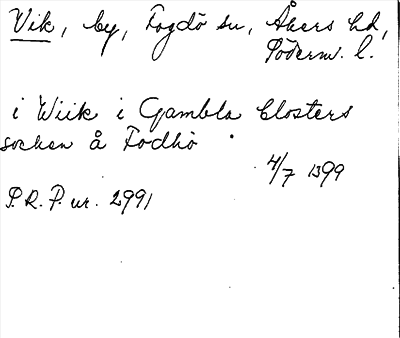 Vik, by, Fogdö sn, Åkers hd,
Söderm. l.
i Wiik i Gambla Closters
socken å Fodhö
4/7 1399
P.R.P. ur. 2991